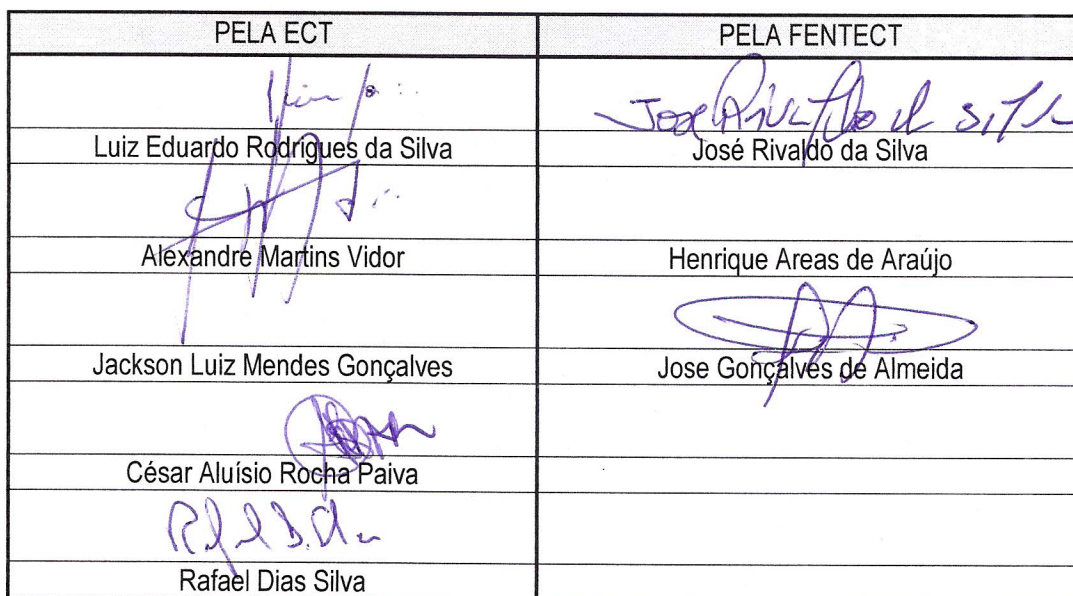 PELA ECT
PELA FENTECT
Luiz Eduardo Rodrigues da Silva
José Rivaldo da Silva
Alexandre Martins Vidor
Henrique Areas de Araújo
Jackson Luiz Mendes Gonçalves
Jose Gonçalves de Almeida
César Aluísio Rocha Paiva
Rafael Dias Silva